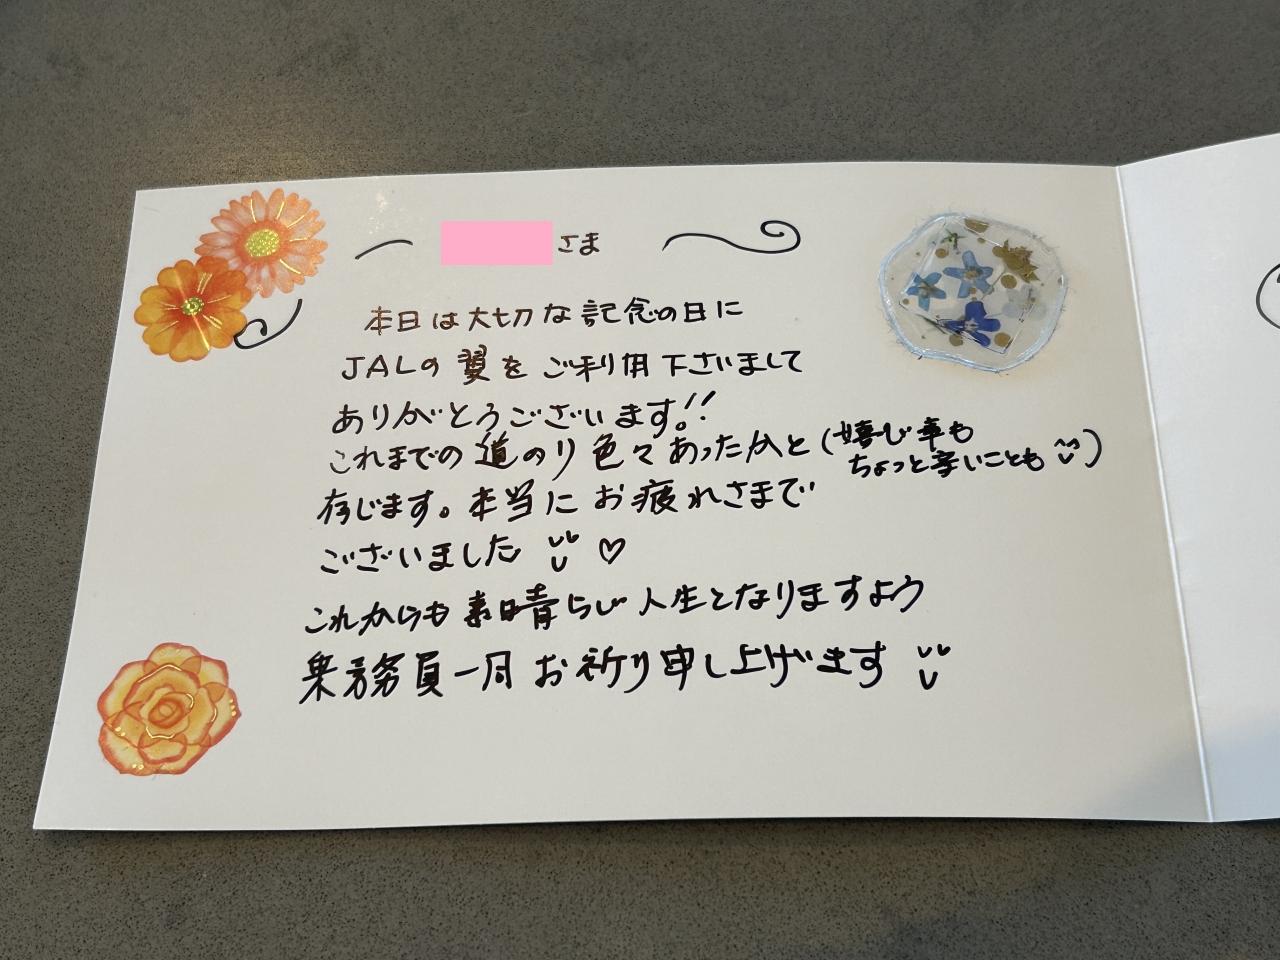 さま
本日は大切な記念の日に
JALの翼をご利用下さいまして
ありがとうございます!!
これまでの道のり色々あったかと(嬉しい事も
ちょっと辛いことも)
存じます。本当にお疲れさまで
ございました♡
これからも素晴らしい人生となりますよう
乗務員一同お祈り申し上げます